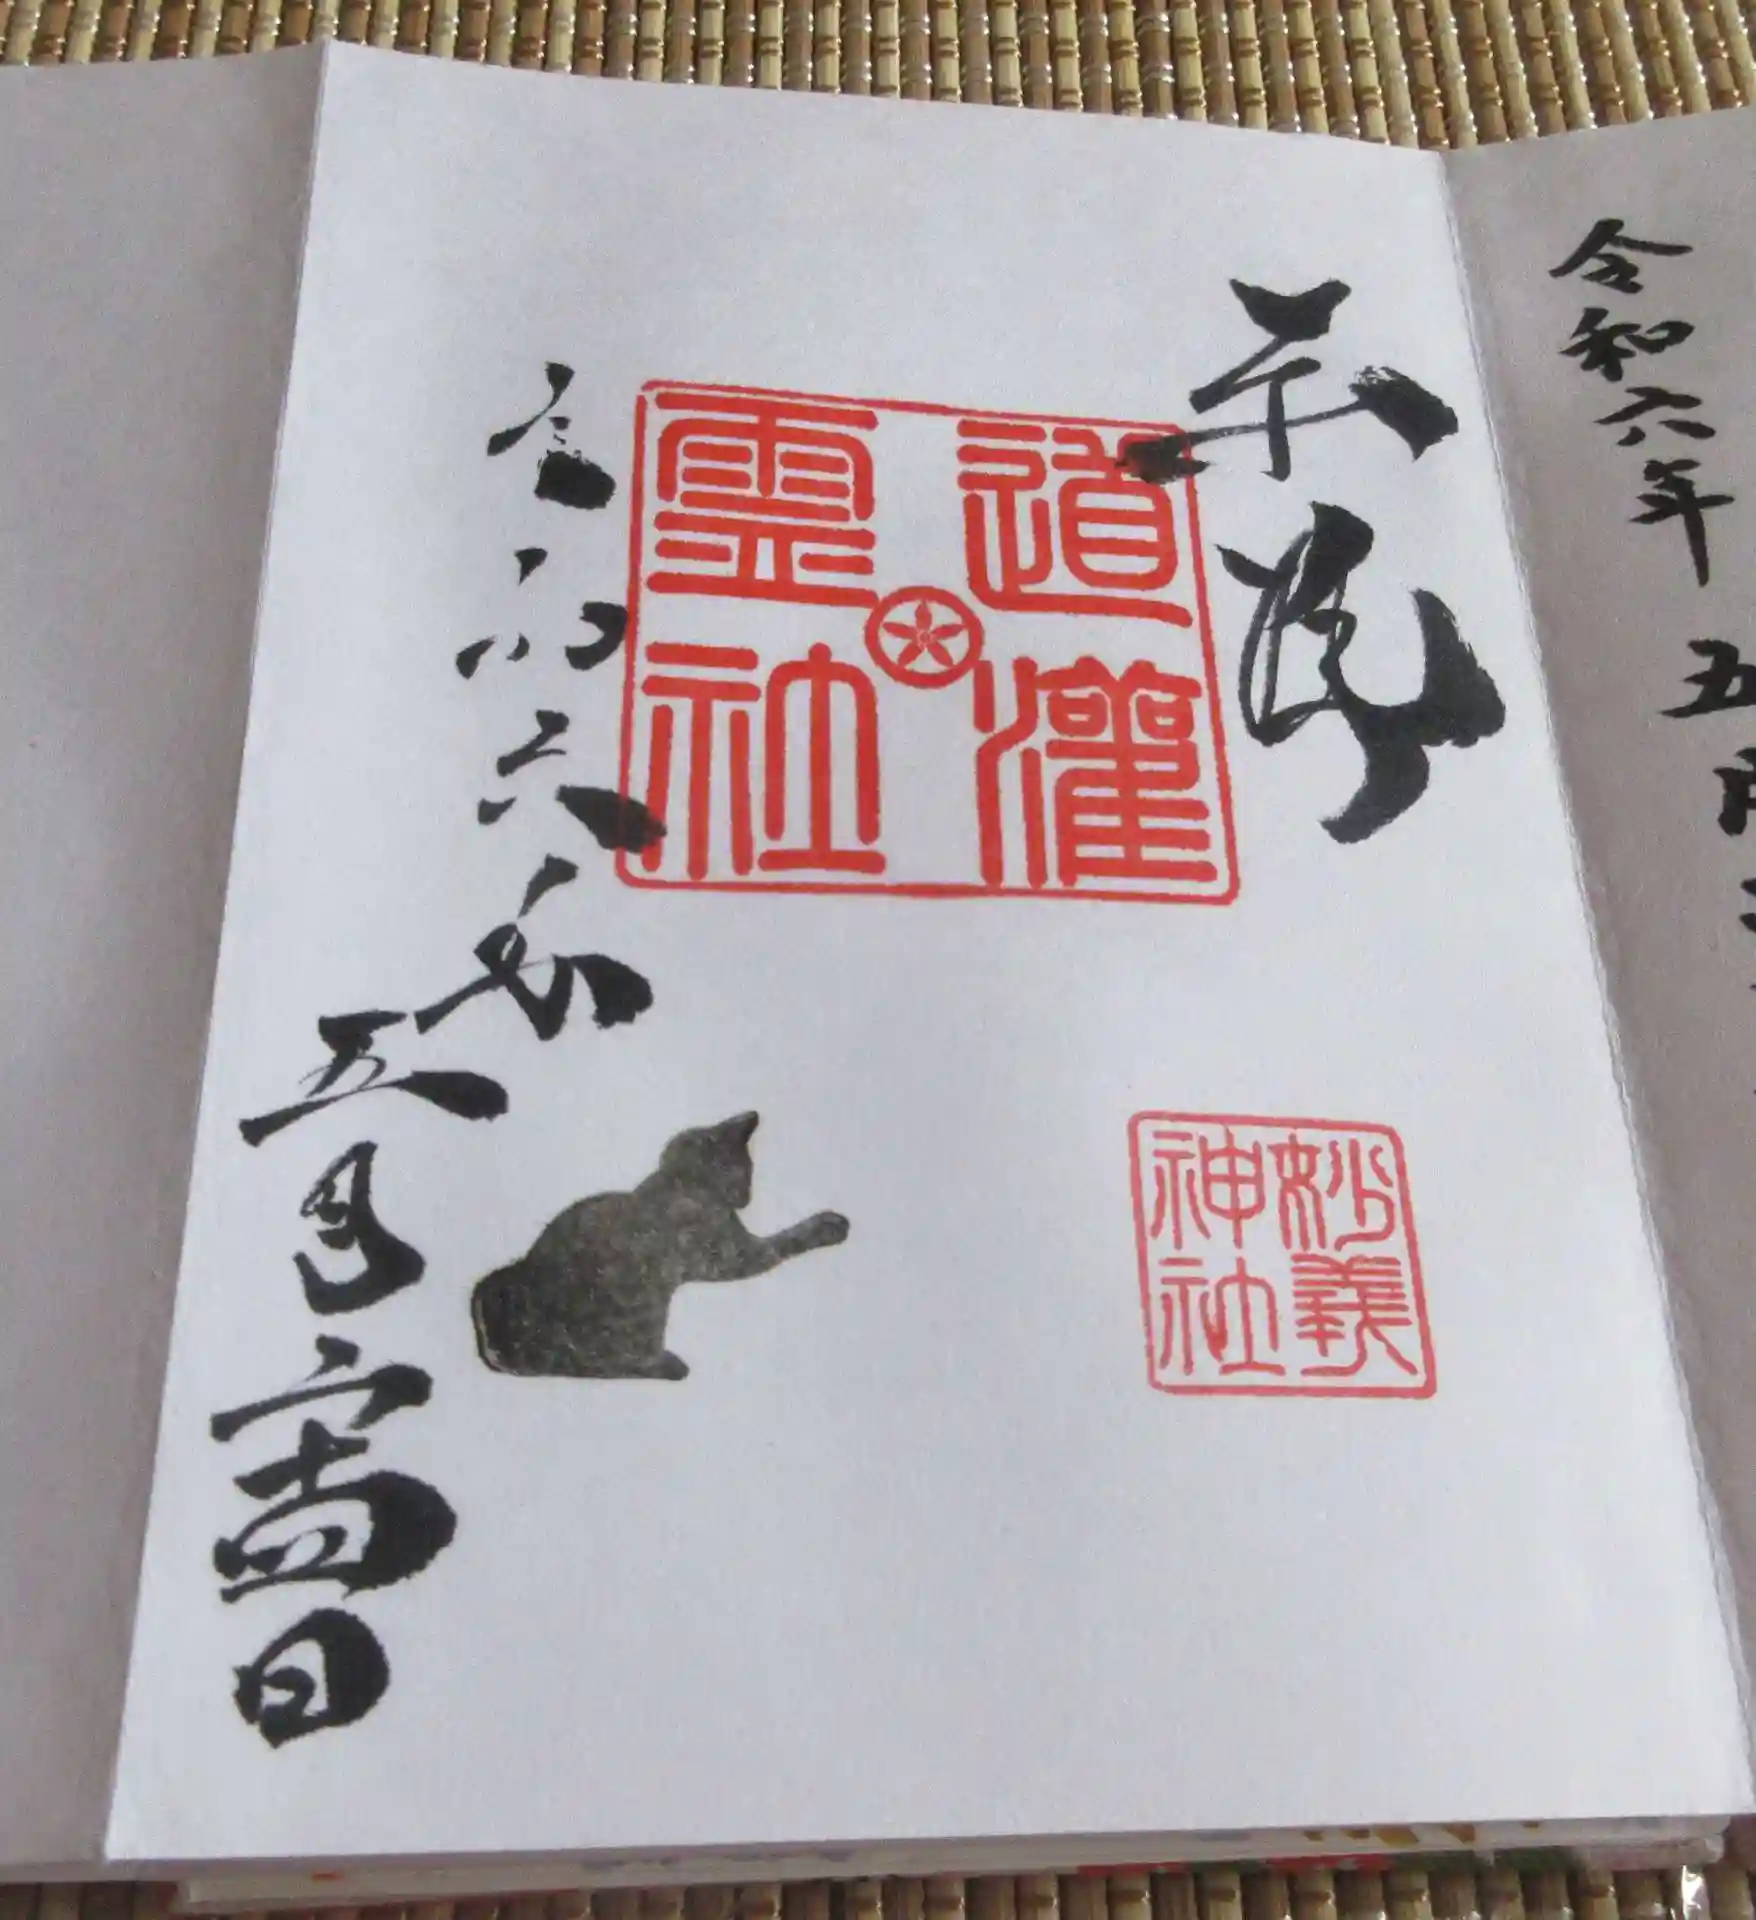 令和六年 五月
奉拝
道灌
霊社
妙義
神社
令和六年
五月
日